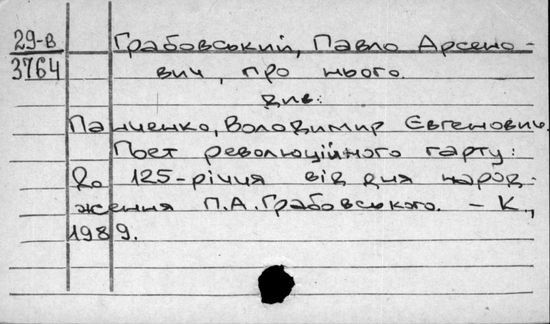 29-в Грабовський, Павло Арсено-
3764 вич, про нього.
див:
Панченко, Володимир Євгенович.
Поет революційного гарту:
До 125-річчя від дня народ-
ження П.А.Грабовського. – К.,
1989.